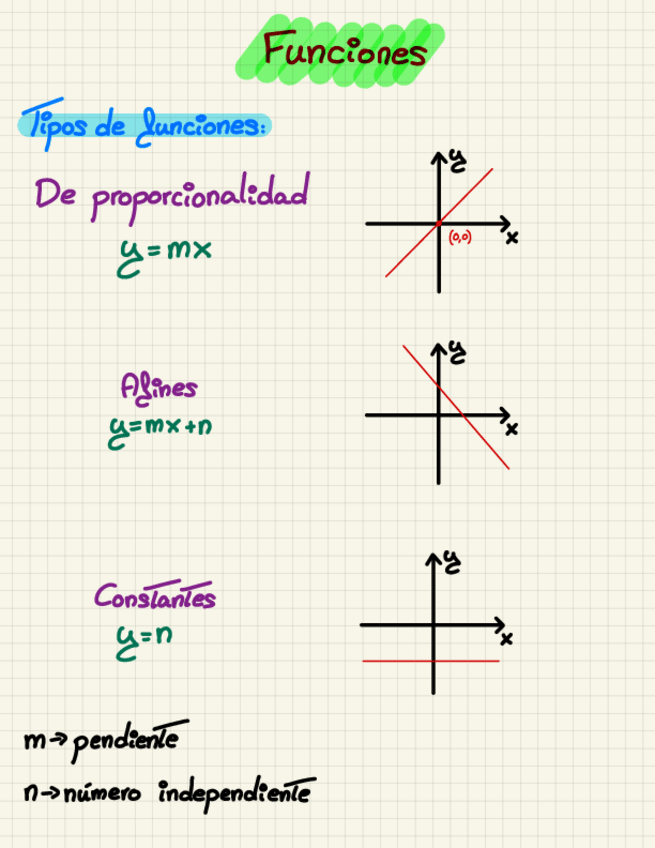 Funciones
Tipos de funciones:
De proporcionalidad
y = mx
y
(0,0)
x
Afines
y=mx+n
y
x
Constantes
y=n
y
x
m→ pendiente
n→número independiente